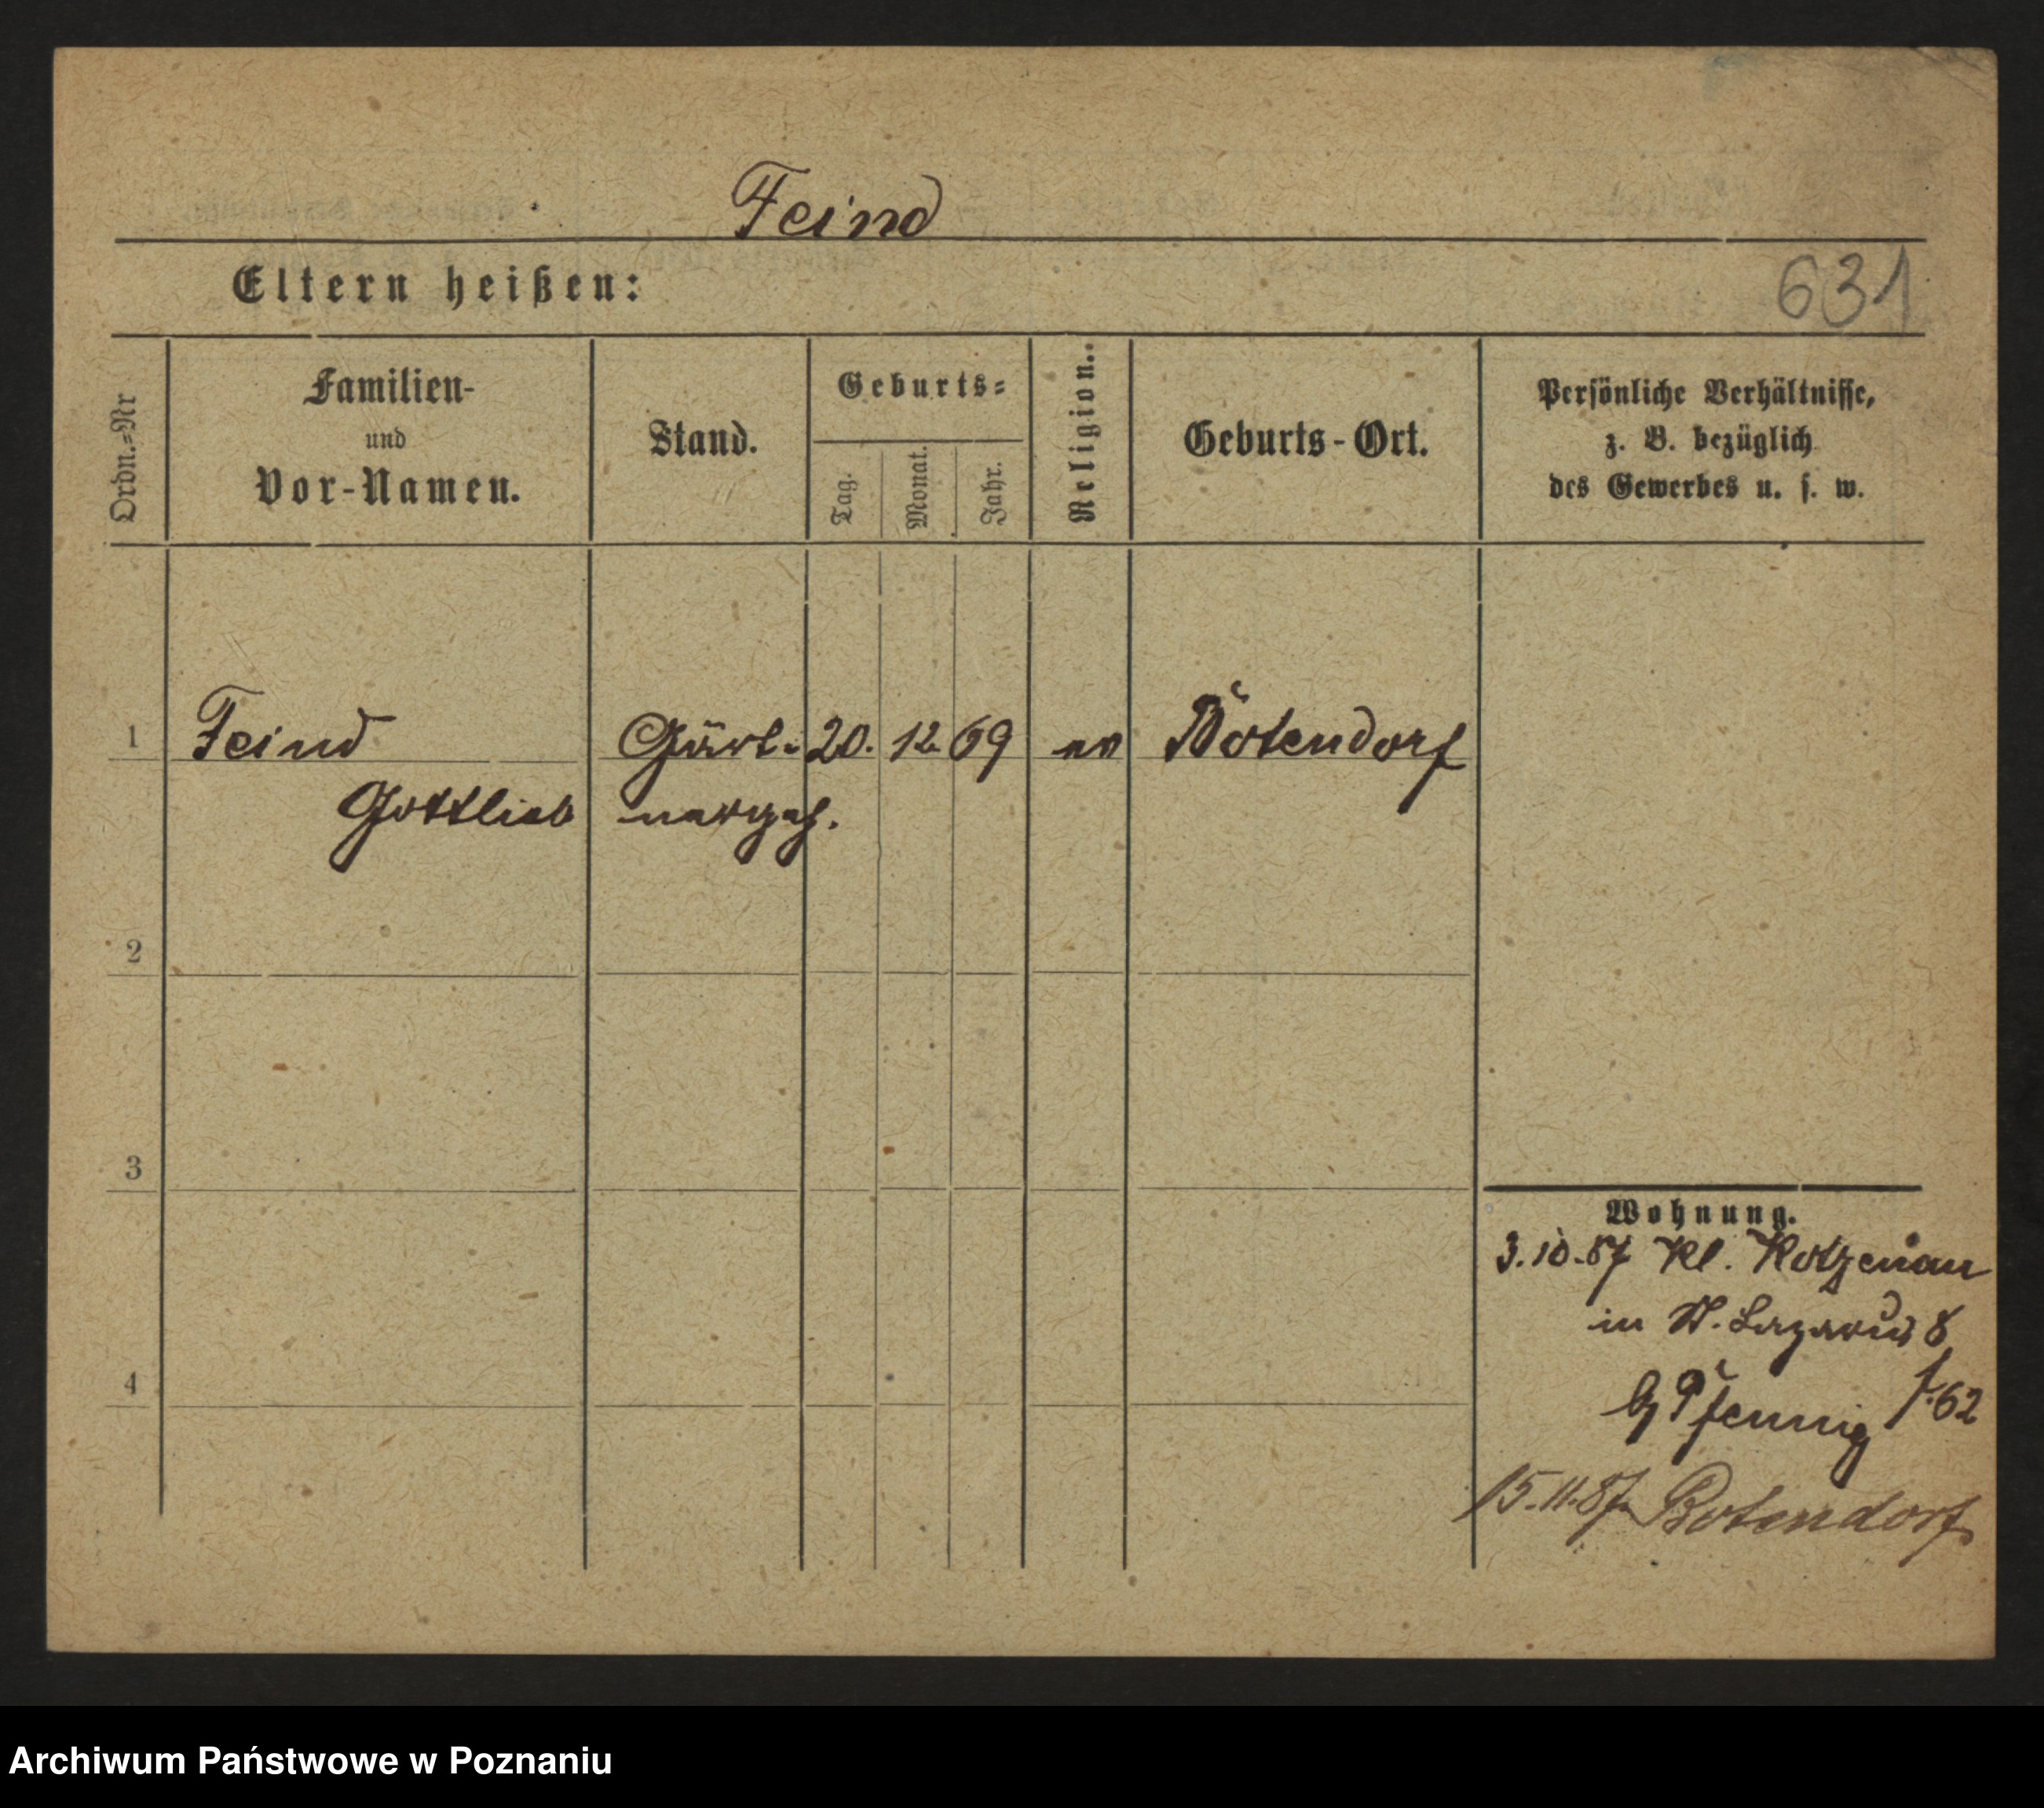 Feind
Eltern heißen:
631
Ordn.=Nr
Familien-
und
Vor-Namen.
Stand.
Geburts=
Tag.
Monat.
Jahr.
Religion.
Geburts-Ort.
Persönliche Verhältnisse,
z. B. bezüglich
des Gewerbes u. s. w.
1 Feind Gärt- 20. 12. 69 ev Botendorf
Gottlieb nergeh.
2
3
4
Wohnung.
3.10.87 Kl. Kotzenau
in St. Lazarus 8
b/ Pfennig f. 62
15.11.87 Botendorf
Archiwum Państwowe w Poznaniu